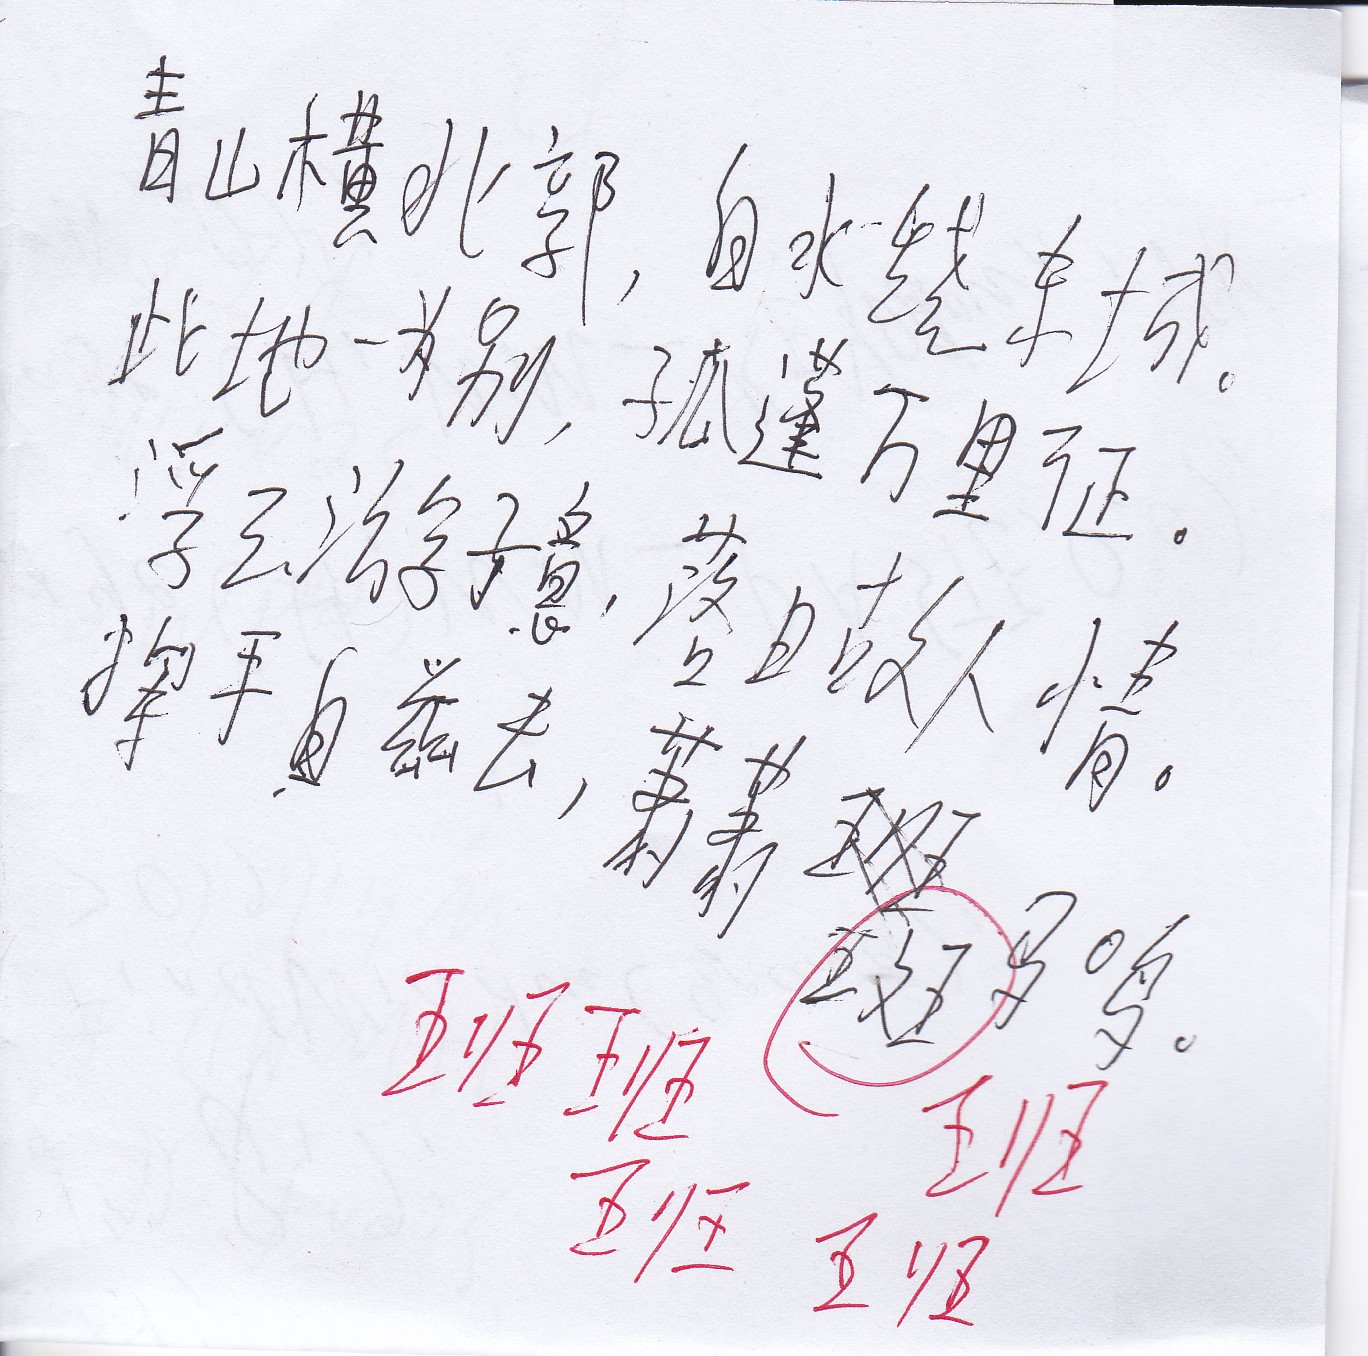 青山横北郭，白水绕东城。
此地一为别，孤蓬万里征。
浮云游子意，落日故人情。
挥手自兹去，萧萧班
斑马鸣。
班班
班
班
班